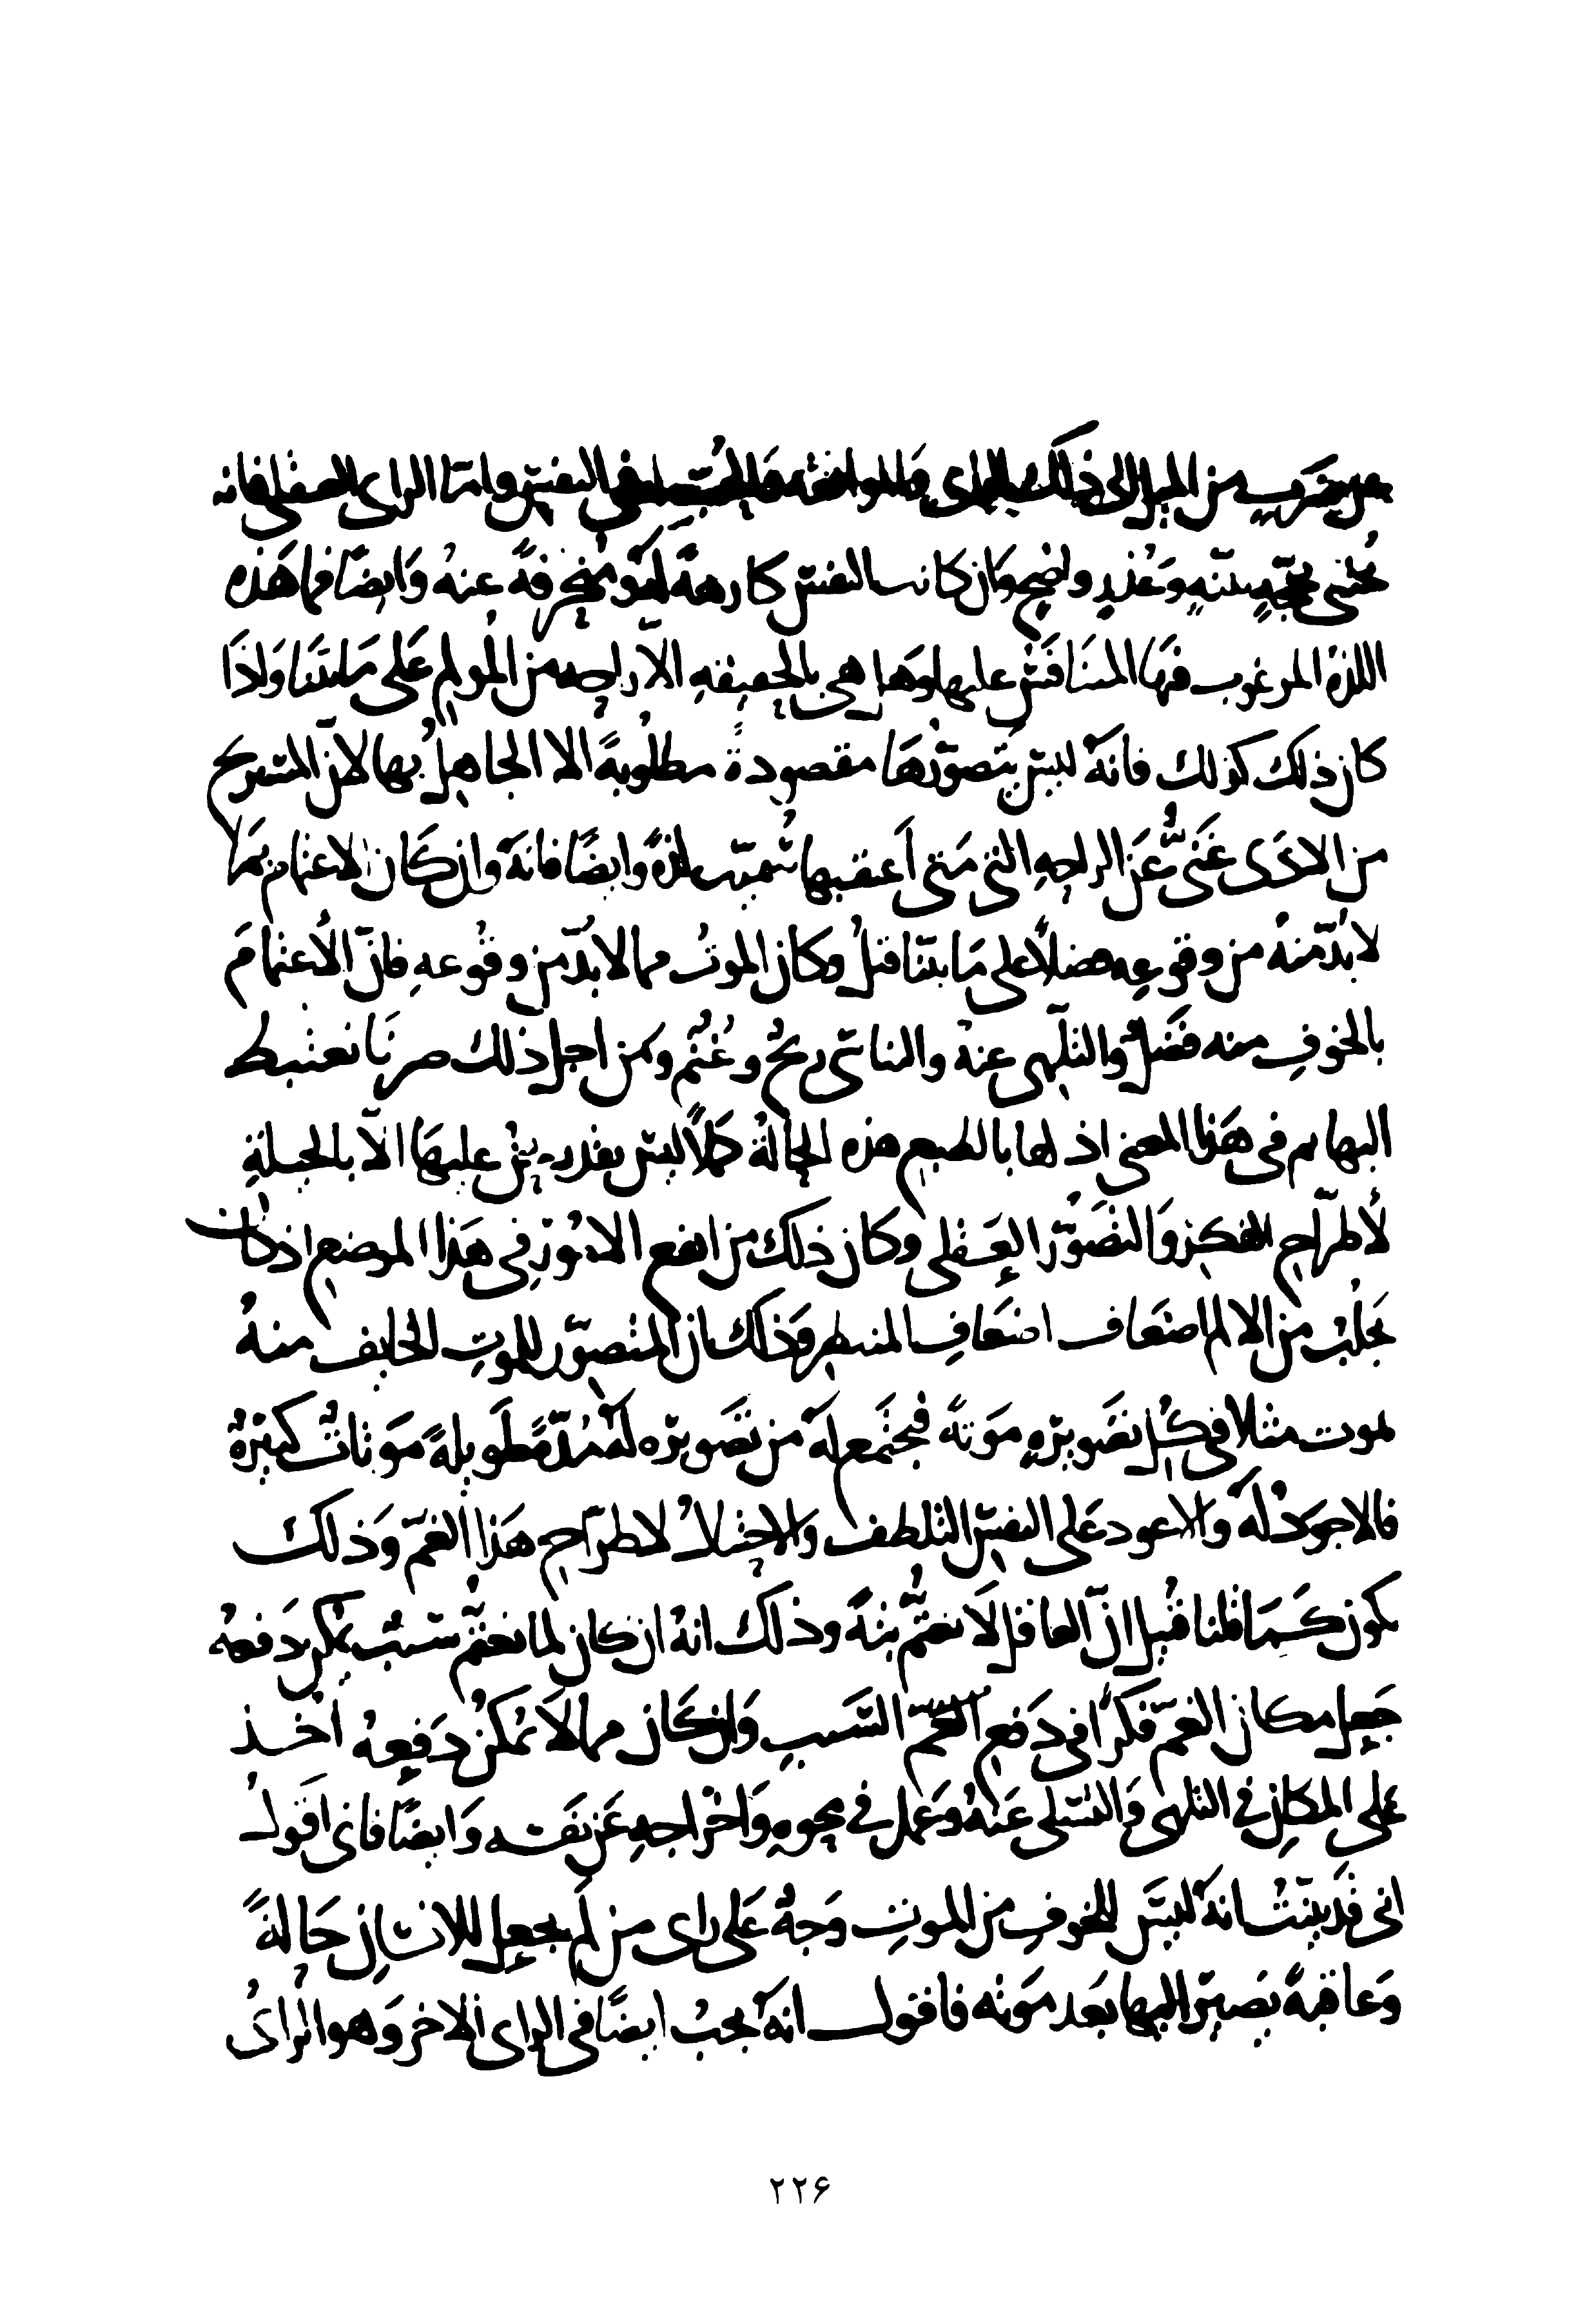 عن ضرب من الميل الى ذلك الراى والموافقة والمحبة له فى النفس واما الراى العقلى فانه
يجتنى بحجة بينة وعذر واضح وان كانت النفس كارهة له منحرفة عنه وايضا فما هذه
اللذة المرغوب فيها المتنافس عليها وهل هى بالحقيقه الا راحه من المولم على ما بينا واذا
كان ذلك كذلك فانه ليس يتصورها مقصودة مطلوبة الا الجاهل بها لان المستريح
من الاذى غنى عن الراحه التى متى اعقبها سميت لذة وايضا فانه وان كان الاغتمام بما
لا بد منه من وقوعه فضلا على ما بينا قبل وكان الموت مما لا بد من وقوعه فان الاغتمام
بالخوف منه فضل والتلهى عنه والتناسى ربح وغنم ومن اجل ذلك صرنا نغتبط
البهايم فى هذا المعنى اذ لها بالطبع هذه الحالة كملا ليس يقدر عليها الا بالحيلة
لاطراح الفكر والتصور العقلى وكان ذلك من انفع الامور فى هذا الموضع اذ كان
يجلب من الالم اضعاف اضعاف المنتظر وذلك ان المتصور للموت الخايف منه
يموت مثلا فى كل تصويره موتة فيجتمع له من تصويره له مدة طويلة موتات كثيرة
فالاجود له والاعود على النفس التلطف والاحتيال لاطراح هذا الغم وذلك
يكون كما قلنا قبيل ان العاقل لا يغتم بتة وذلك انه ان كان لما يغتم سبب يمكن دفعه
جعل مكان الغم فكرا فى دفع الغم السبب وان كان مما لا يمكن دفعه اخذ
على المكان فى التلهى والتسلى عنه وعمل فى محوه واخراجه عن نفسه وايضا فانى اقول
انى قد بينت انه ليس للخوف من الموت وجه على راى من لم يجعل للانسان حالة
وعاقبة يصير اليها بعد موته فاقول انه يجب ايضا فى الراى الاخر وهو الراى
۲۲۶